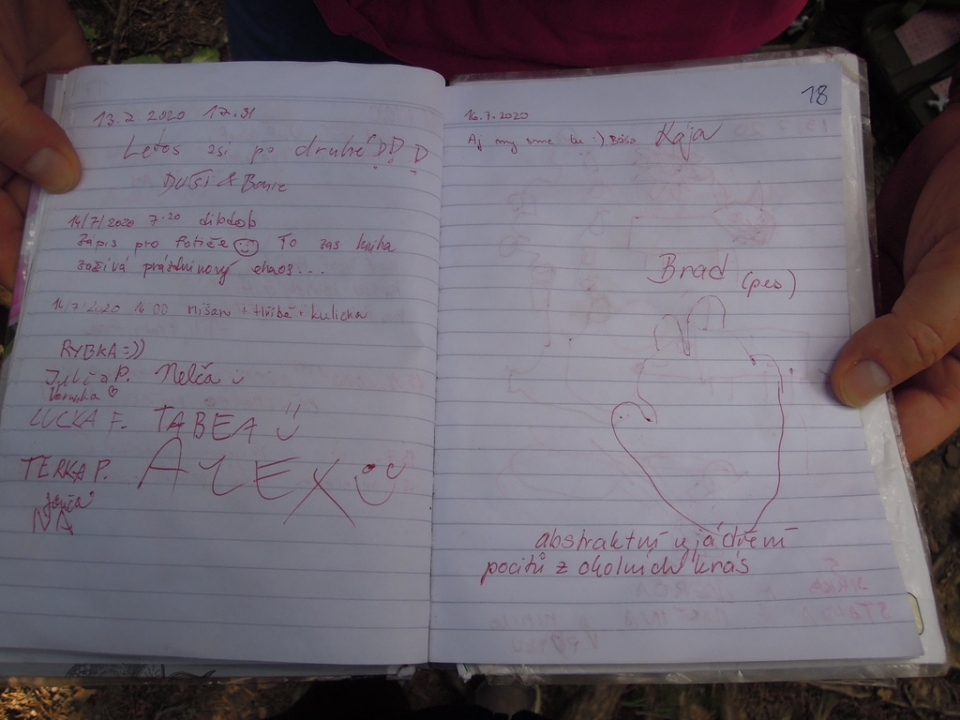 13.7 2020 17.31
Letos asi po druhé :D :D :D
Duši & Bonie
14/7/2020 7:20 dibdoob
Zápis pro Fotiče To zas kniha
zažívá prázdninový chaos...
14.7.2020 16 00 Mišan + Hříbě + kulicha
RYBKA =))
P. Nelča
Verunka ♡
LUCKA F. TABEA
TERKA P. ALEX
18
16.7.2020
Aj my sme tu :) Kája
Brad (pes)
abstraktní vyjádření
pocitů z okolních krás